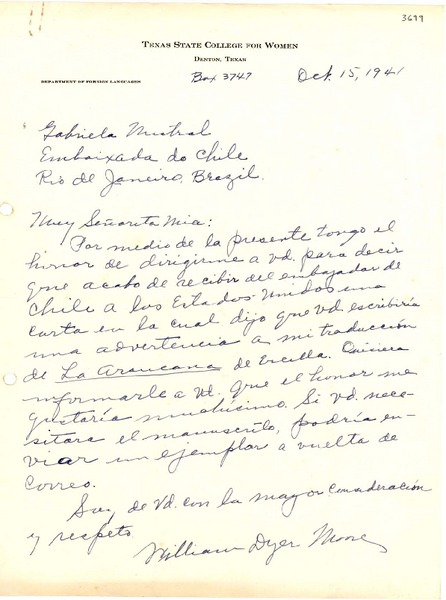 3699
TEXAS STATE COLLEGE FOR WOMEN
DENTON, TEXAS
Box 3747
Oct. 15, 1941
DEPARTMENT OF FOREIGN LANGUAGES
Gabriela Mistral
Embaixada do Chile
Rio de Janeiro, Brazil.
Muy Señorita Mia:
Por medio de la presente tengo el
honor de dirigirme a vd. para decir
que acabo de recibir del embajador de
Chile a los Estados Unidos una
carta en la cual dijo que vd. escribiría
una advertencia a mi traducción
de La Araucana de Ercilla. Quisiera
informarle a Vd. que el honor me
gustaría muchísimo. Si vd. nece-
sitara el manuscrito, podría en-
viar un ejemplar a vuelta de
correo.
Soy de Vd. con la mayor consideración
y respeto
William Dyer Moore